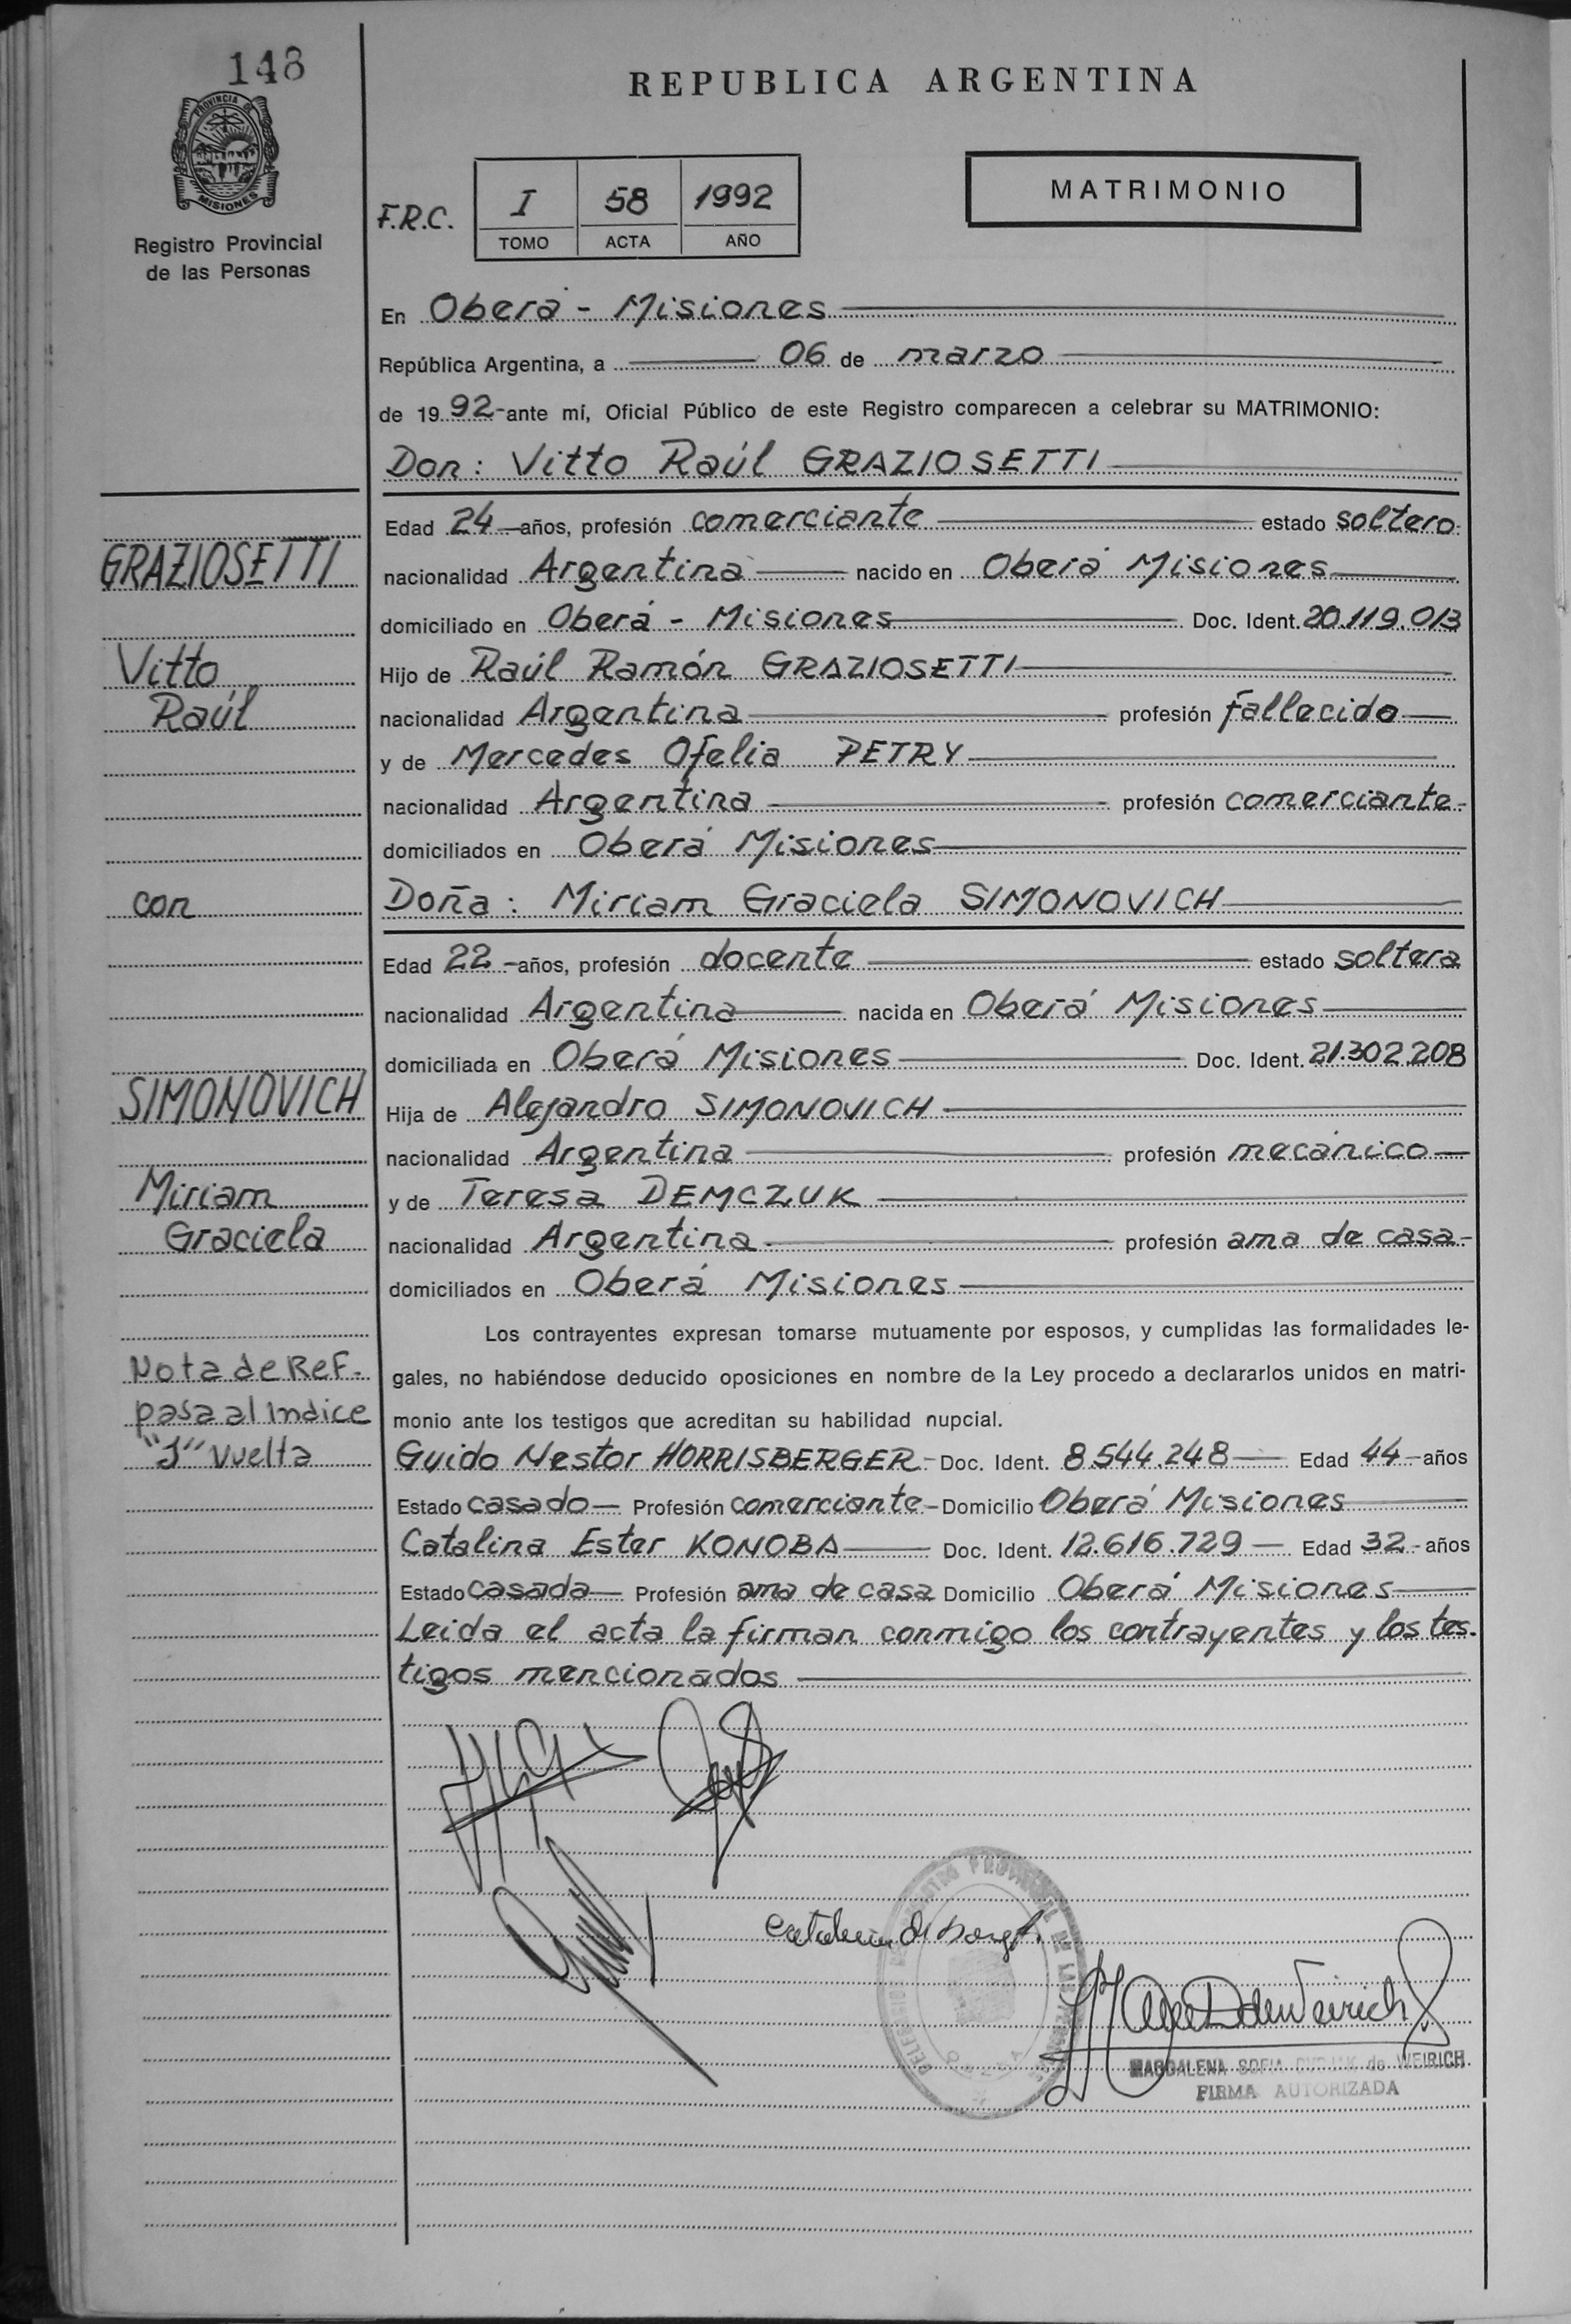 148
PROVINCIA DE
MISIONES
Registro Provincial
de las Personas
REPUBLICA ARGENTINA
F.R.C.
I 58 1992
TOMO ACTA AÑO
MATRIMONIO
En Oberá - Misiones
República Argentina, a 06 de marzo
de 1992 ante mí, Oficial Público de este Registro comparecen a celebrar su MATRIMONIO:
Don: Vitto Raúl GRAZIOSETTI
Edad 24 años, profesión comerciante estado soltero
nacionalidad Argentina nacido en Oberá Misiones
domiciliado en Oberá - Misiones Doc. Ident. 20.119.013
Hijo de Raúl Ramón GRAZIOSETTI
nacionalidad Argentina profesión Fallecido
y de Mercedes Ofelia PETRY
nacionalidad Argentina profesión comerciante
domiciliados en Oberá Misiones
Doña: Miriam Graciela SIMONOVICH
Edad 22 años, profesión docente estado soltera
nacionalidad Argentina nacida en Oberá Misiones
domiciliada en Oberá Misiones Doc. Ident. 21.302.208
Hija de Alejandro SIMONOVICH
nacionalidad Argentina profesión mecánico
y de Teresa DEMCZUK
nacionalidad Argentina profesión ama de casa
domiciliados en Oberá Misiones
Los contrayentes expresan tomarse mutuamente por esposos, y cumplidas las formalidades le-
gales, no habiéndose deducido oposiciones en nombre de la Ley procedo a declararlos unidos en matri-
monio ante los testigos que acreditan su habilidad nupcial.
Guido Nestor HORRISBERGER Doc. Ident. 8.544.248 Edad 44 años
Estado casado Profesión comerciante Domicilio Oberá Misiones
Catalina Ester KONOBA Doc. Ident. 12.616.729 Edad 32 años
Estado casada Profesión ama de casa Domicilio Oberá Misiones
Leida el acta la firman conmigo los contrayentes y los tes-
tigos mencionados
GRAZIOSETTI
Vitto
Raúl
con
SIMONOVICH
Miriam
Graciela
Nota de Ref.
pasa al Indice
"J" Vuelta
MAGDALENA SOFIA de WEIRICH
FIRMA AUTORIZADA